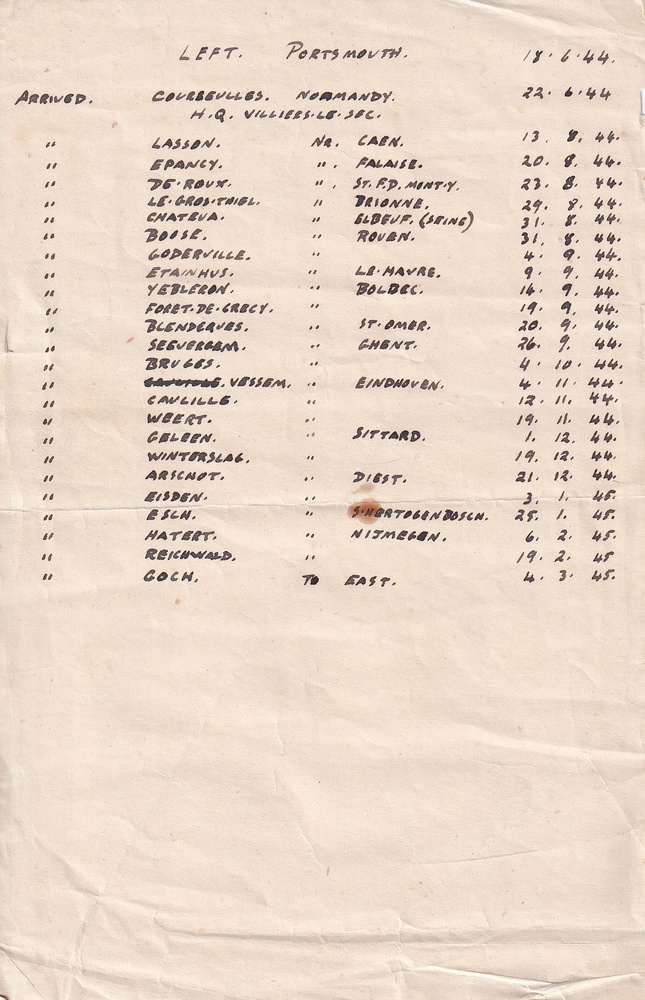 LEFT. PORTSMOUTH. 18.6.44.
ARRIVED. COURSEULLES. NORMANDY. 22.6.44
H.Q. VILLIERS.LE.SEC.
" LASSON. NR. CAEN. 13. 8. 44.
" EPANCY. ". FALAISE. 20. 8. 44.
" DE.ROUX. ". ST.F.D.MONT.Y. 23. 8. 44.
" LE.GROS.THIEL. " BRIONNE. 29. 8. 44.
" CHATEUA. " ELBEUF.(SEINE) 31. 8. 44.
" BOOSE. " ROUEN. 31. 8. 44.
" GODERVILLE. " 4. 9. 44.
" ETAINHUS. " LE.HAVRE. 9. 9. 44.
" YEBLERON. " BOLBEC. 14. 9. 44.
" FORET.DE.CRECY. " 19. 9. 44.
" BLENDEQUES. " ST.OMER. 20. 9. 44.
" SEEVERGEM. " GHENT. 26. 9. 44.
" BRUGES. " 4. 10. 44.
" VESSEM. " EINDHOVEN. 4. 11. 44.
" CAULILLE. " 12. 11. 44.
" WEERT. " 19. 11. 44.
" GELEEN. " SITTARD. 1. 12. 44.
" WINTERSLAG. " 19. 12. 44
" ARSCHOT. " DIEST. 21. 12. 44
" EISDEN. " 3. 1. 45.
" ESCH. " S.HERTOGENBOSCH. 25. 1. 45.
" HATERT. " NIJMEGEN. 6. 2. 45.
" REICHWALD. " 19. 2. 45
" GOCH. TO EAST. 4. 3. 45.